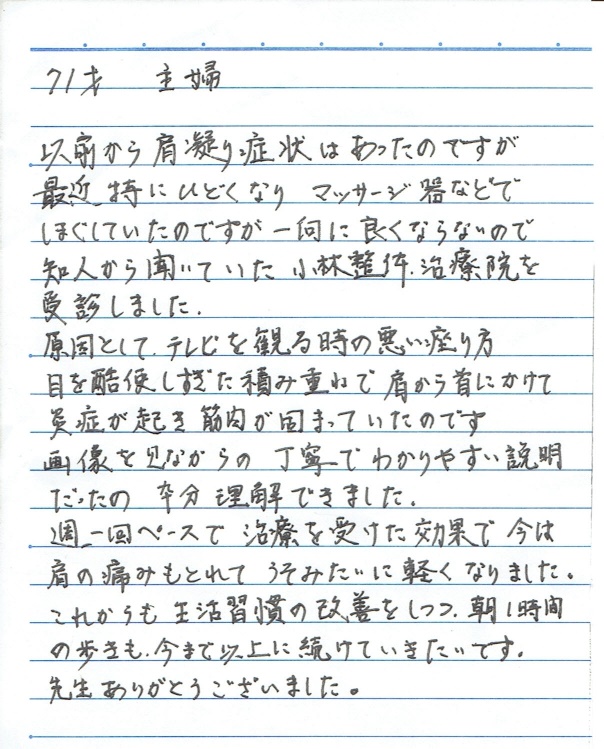 71才 主婦
以前から肩凝り症状はあったのですが
最近特にひどくなり マッサージ器などで
ほぐしていたのですが一向に良くならないので
知人から聞いていた小林整体.治療院を
受診しました.
原因として.テレビを観る時の悪い座り方
目を酷使しすぎた積み重ねで肩から首にかけて
炎症が起き筋肉が固まっていたのです
画像を見ながらの 丁寧でわかりやすい説明
だったの 十分理解できました.
週一回ペースで 治療を受けた効果で今は
肩の痛みもとれて うそみたいに軽くなりました。
これからも生活習慣の改善をしつつ.朝1時間
の歩きも.今まで以上に続けていきたいです。
先生ありがとうございました。